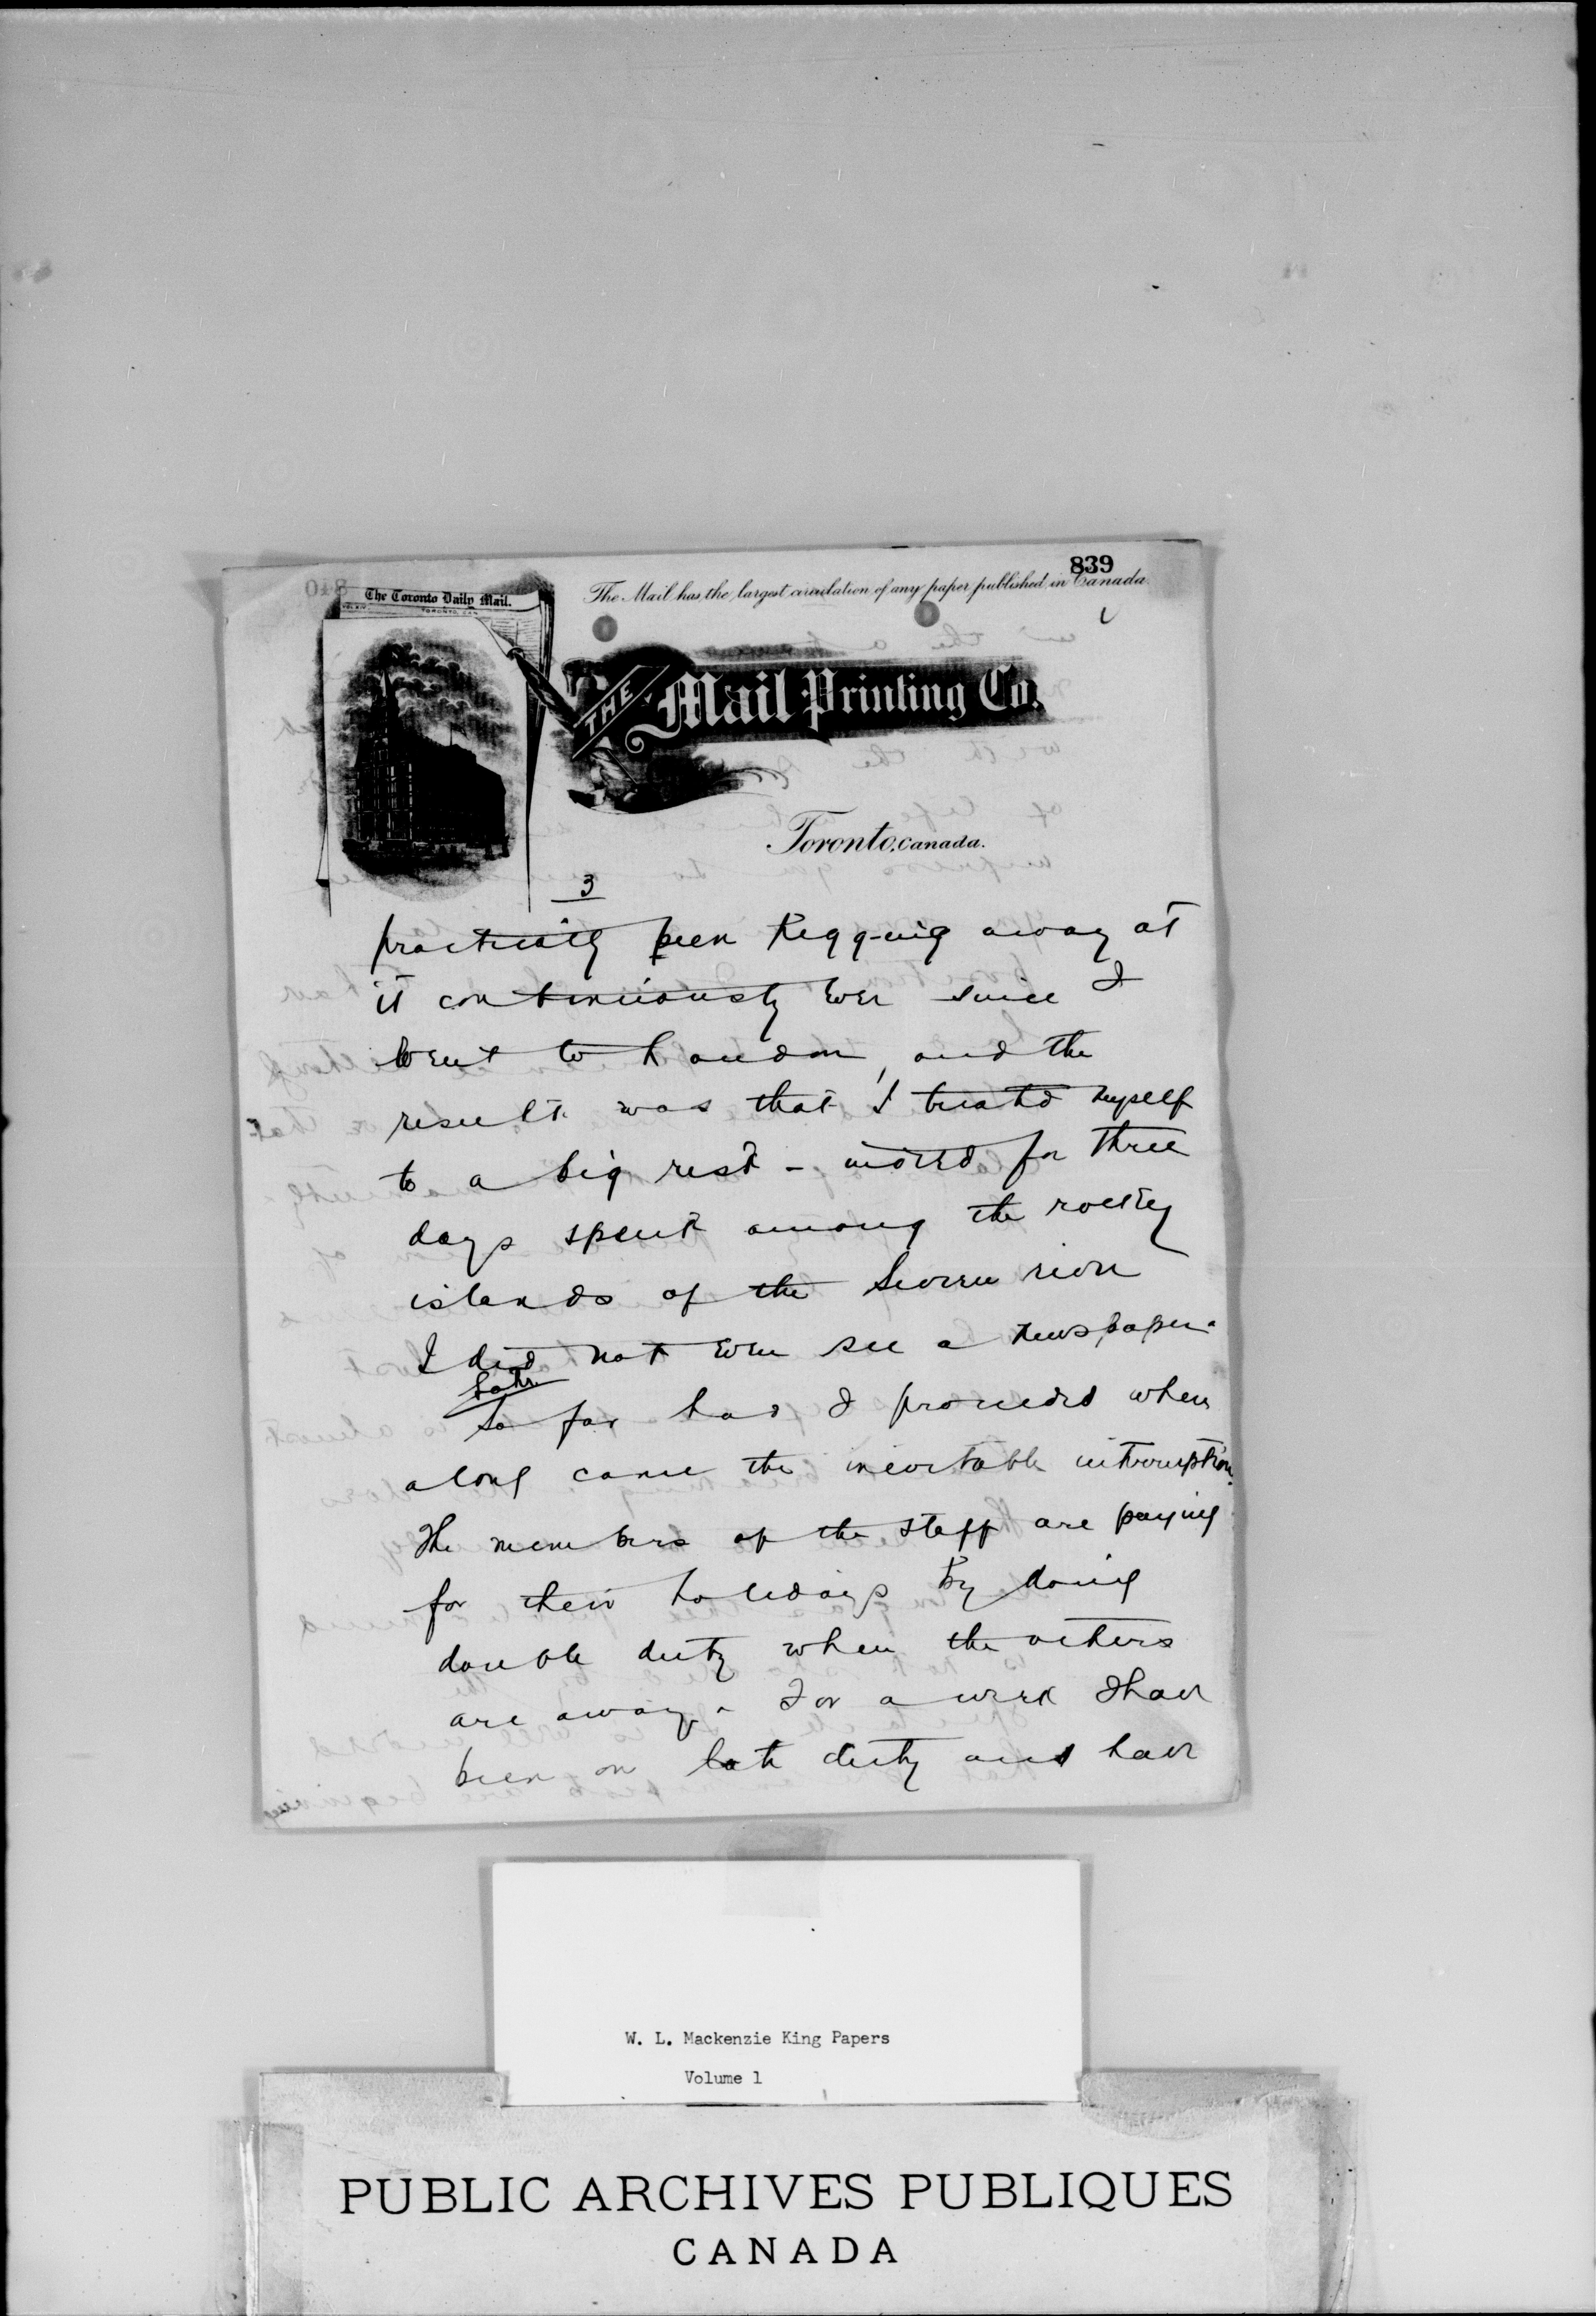 839
The Mail has the largest circulation of any paper published in Canada.
The Toronto Daily Mail.
TORONTO, CAN
THE Mail Printing Co.
Toronto, Canada.
3
practically been pegging away at
it continuously ever since I
went to London, and the
result was that I treated myself
to a big rest - indeed for three
days spent among the rocky
islands of the Severn river
I did not even see a newspaper.
Later
So far had I proceeded when
along came the inevitable interruption.
The members of the staff are paying
for their holidays by doing
double duty when the others
are away. For a week I have
been on late duty and have
W. L. Mackenzie King Papers
Volume 1
PUBLIC ARCHIVES PUBLIQUES
CANADA